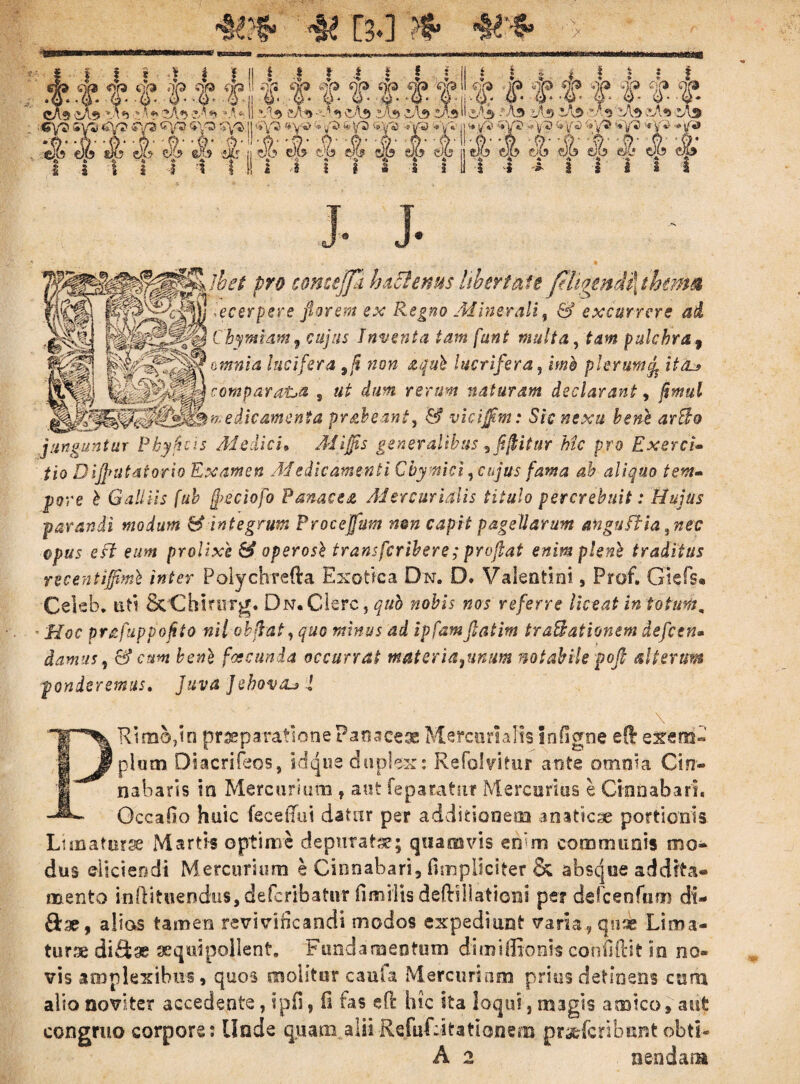 [3.]
J. J.
Ibet pro concessâ hactenus libertate seligendi thema
decerpere florem ex Regno Minerali, & excurrere ad
Chymiam, cujus Inventa tam sunt multa, tam pulchra,
omnia lucifera, si non æquè lucrifera, imò plerumq; ita
comparata, ut dum rerum naturam declarant, simul
medicamenta præbeant, & vicissim: Sic nexu benè arcto
junguntur Physicis Medici. Missis generalibus, sistitur hîc pro Exerci-
tio Disputatorio Examen Medicamenti Chymici, cujus fama ab aliquo tem-
pore è Galliis sub specioso Panaceæ Mercurialis titulo percrebuit: Hujus
parandi modum & integrum Processum non capit pagellarum angustia, nec
opus est eum prolixè & operosè transcribere; prostat enim plenè traditus
recentissimè inter Polychresta Exotica Dn. D. Valentini, Prof. Giess.
Celeb. uti & Chirurg. Dn. Clerc, quò nobis nos referre liceat in totum.
Hoc præsupposito nil obstat, quo minus ad ipsam statim tractationem descen-
damus, & cum benè fœcunda occurrat materia, unum notabile post alterum
ponderemus. Juva Jehova!
PRimò, in præparatione Panaceæ Mercurialis insigne est exem-
plum Diacriseos, idque duplex: Resolvitur ante omnia Cin-
nabaris in Mercurium, aut separatur Mercurius è Cinnabari.
Occasio huic secessui datur per additionem anaticæ portionis
Limaturæ Martis optimè depuratæ; quamvis enim communis mo-
dus eliciendi Mercurium è Cinnabari, simpliciter & absque addita-
mento instituendus, describatur similis destillationi per descensum di-
ctæ, alios tamen revivificandi modos expediunt varia, quæ Lima-
turæ dictæ æquipollent. Fundamentum dimissionis consistit in no-
vis amplexibus, quos molitur causa Mercurium prius detinens cum
alio noviter accedente, ipsi, si fas est hîc ita loqui, magis amico, aut
congruo corpore: Unde quam alii Resuscitationem præscribunt obti-
A 2 nendam